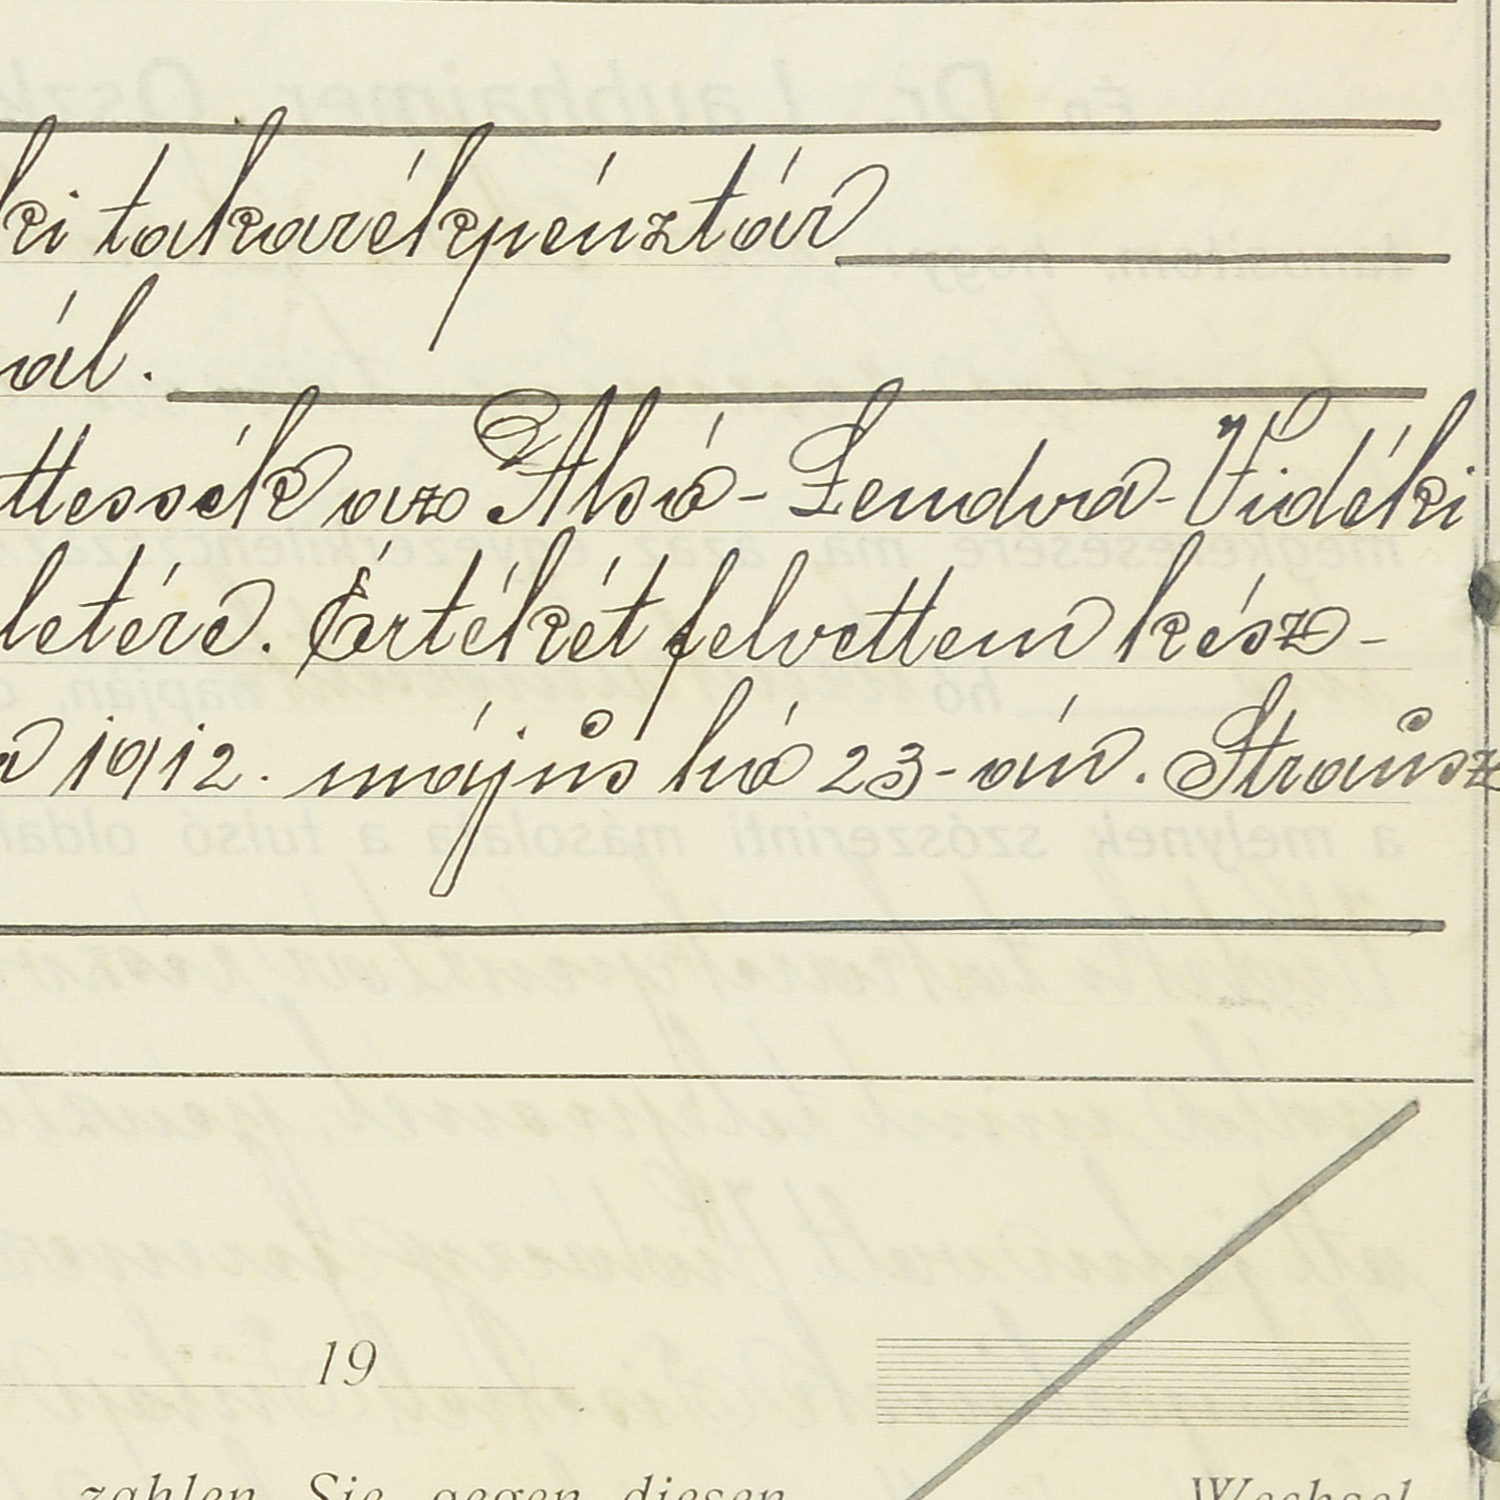 ki takarékpénztár
nál.
ttessék az Alsó-Lendva-Vidéki
letére. Értékét felvettem kész-
1912. május hó 23-án. Strausz
19
zahlen Sie gegen diesen Wechsel